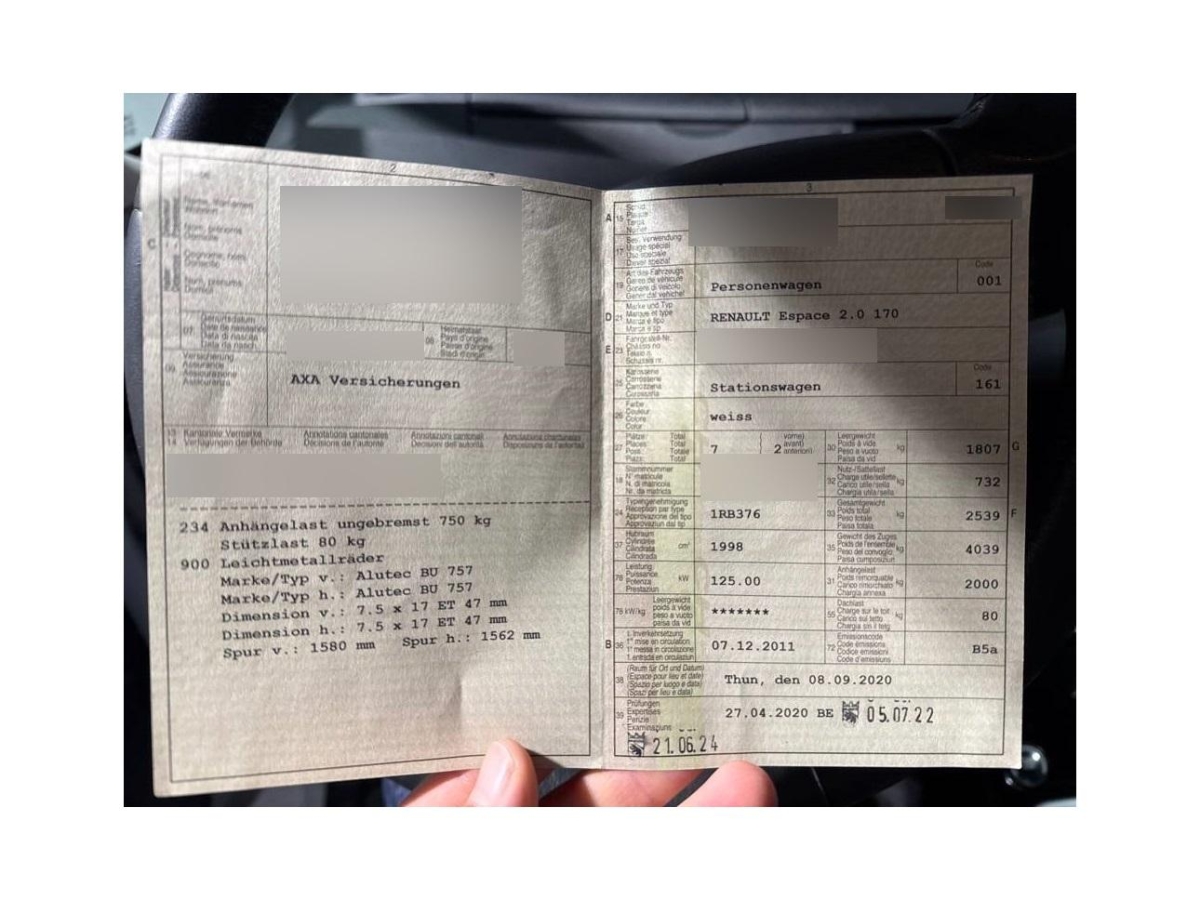 2
C
Name, Vornamen
Wohnort
Nom, prénoms
Domicile
Cognome, nomi
Domicilio
Num, prenums
Domicil
07
Geburtsdatum
Date de naissance
Data di nascita
Data da nasch.
08
Heimatstaat
Pays d'origine
Paese d'origine
Stadi d'origin
09
Versicherung
Assurance
Assicurazione
Assicuranza
AXA Versicherungen
13
14
Kantonale Vermerke
Verfügungen der Behörde
Annotations cantonales
Décisions de l'autorité
Annotazioni cantonali
Decisioni dell'autorità
Annotaziuns chantunalas
Disposiziuns da l'autoritad
234 Anhängelast ungebremst 750 kg
Stützlast 80 kg
900 Leichtmetallräder
Marke/Typ v.: Alutec BU 757
Marke/Typ h.: Alutec BU 757
Dimension v.: 7.5 x 17 ET 47 mm
Dimension h.: 7.5 x 17 ET 47 mm
Spur v.: 1580 mm Spur h.: 1562 mm
3
A 15
Schild
Plaque
Targa
Numer
17
Bes. Verwendung
Usage spécial
Uso speciale
Diever spezial
19
Art des Fahrzeugs
Genre de véhicule
Genere di veicolo
Gener dal vehichel
Personenwagen
Code
001
D 21
Marke und Typ
Marque et type
Marca e tipo
Marca e tip
RENAULT Espace 2.0 170
E 23
Fahrgestell-Nr.
Châssis no
Telaio n.
Schassis nr.
25
Karosserie
Carrosserie
Carrozzeria
Carossaria
Stationswagen
Code
161
26
Farbe
Couleur
Colore
Color
weiss
27
Plätze: Total
Places: Total
Posti: Totale
Plazs: Total
7
( vorne)
2 avant)
anteriori)
30
Leergewicht
Poids à vide
Peso a vuoto
Paisa da vid
kg
1807
G
18
Stammnummer
N° matricule
N. di matricola
Nr. da matricla
32
Nutz-/Sattellast
Charge utile/sellette
Carico utile/sella
Chargia utila/sella
kg
732
24
Typengenehmigung
Réception par type
Approvazione del tipo
Approvaziun dal tip
1RB376
33
Gesamtgewicht
Poids total
Peso totale
Paisa totala
kg
2539
F
37
Hubraum
Cylindrée
Cilindrata
Cilindrada
cm³
1998
35
Gewicht des Zuges
Poids de l'ensemble
Peso del convoglio
Paisa cumposiziun
kg
4039
76
Leistung
Puissance
Potenza
Prestaziun
kW
125.00
31
Anhängelast
Poids remorquable
Carico rimorchiato
Chargia annexa
kg
2000
78 kW/kg
Leergewicht
poids à vide
peso a vuoto
paisa da vid
*******
55
Dachlast
Charge sur le toit
Carico sul tetto
Chargia sin il tetg
kg
80
B 36
1. Inverkehrsetzung
1re mise en circulation
1a messa in circolazione
1. entrada en circulaziun
07.12.2011
72
Emissionscode
Code émissions
Codice emissioni
Code d'emissiuns
B5a
38
(Raum für Ort und Datum)
(Espace pour lieu et date)
(Spazio per luogo e data)
(Spazi per lieu e data)
Thun, den 08.09.2020
39
Prüfungen
Expertises
Perizie
Examinaziuns
27.04.2020 BE 05.07.22
21.06.24